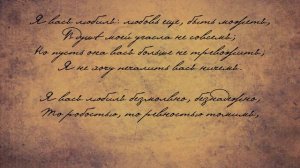 Я васъ любилъ: любовь еще, быть можетъ,
Въ душѣ моей угасла не совсѣмъ;
Но пусть она васъ больше не тревожитъ;
Я не хочу печалить васъ ничемъ.
Я васъ любилъ безмолвно, безнадежно,
То робостью, то ревностью томимъ,